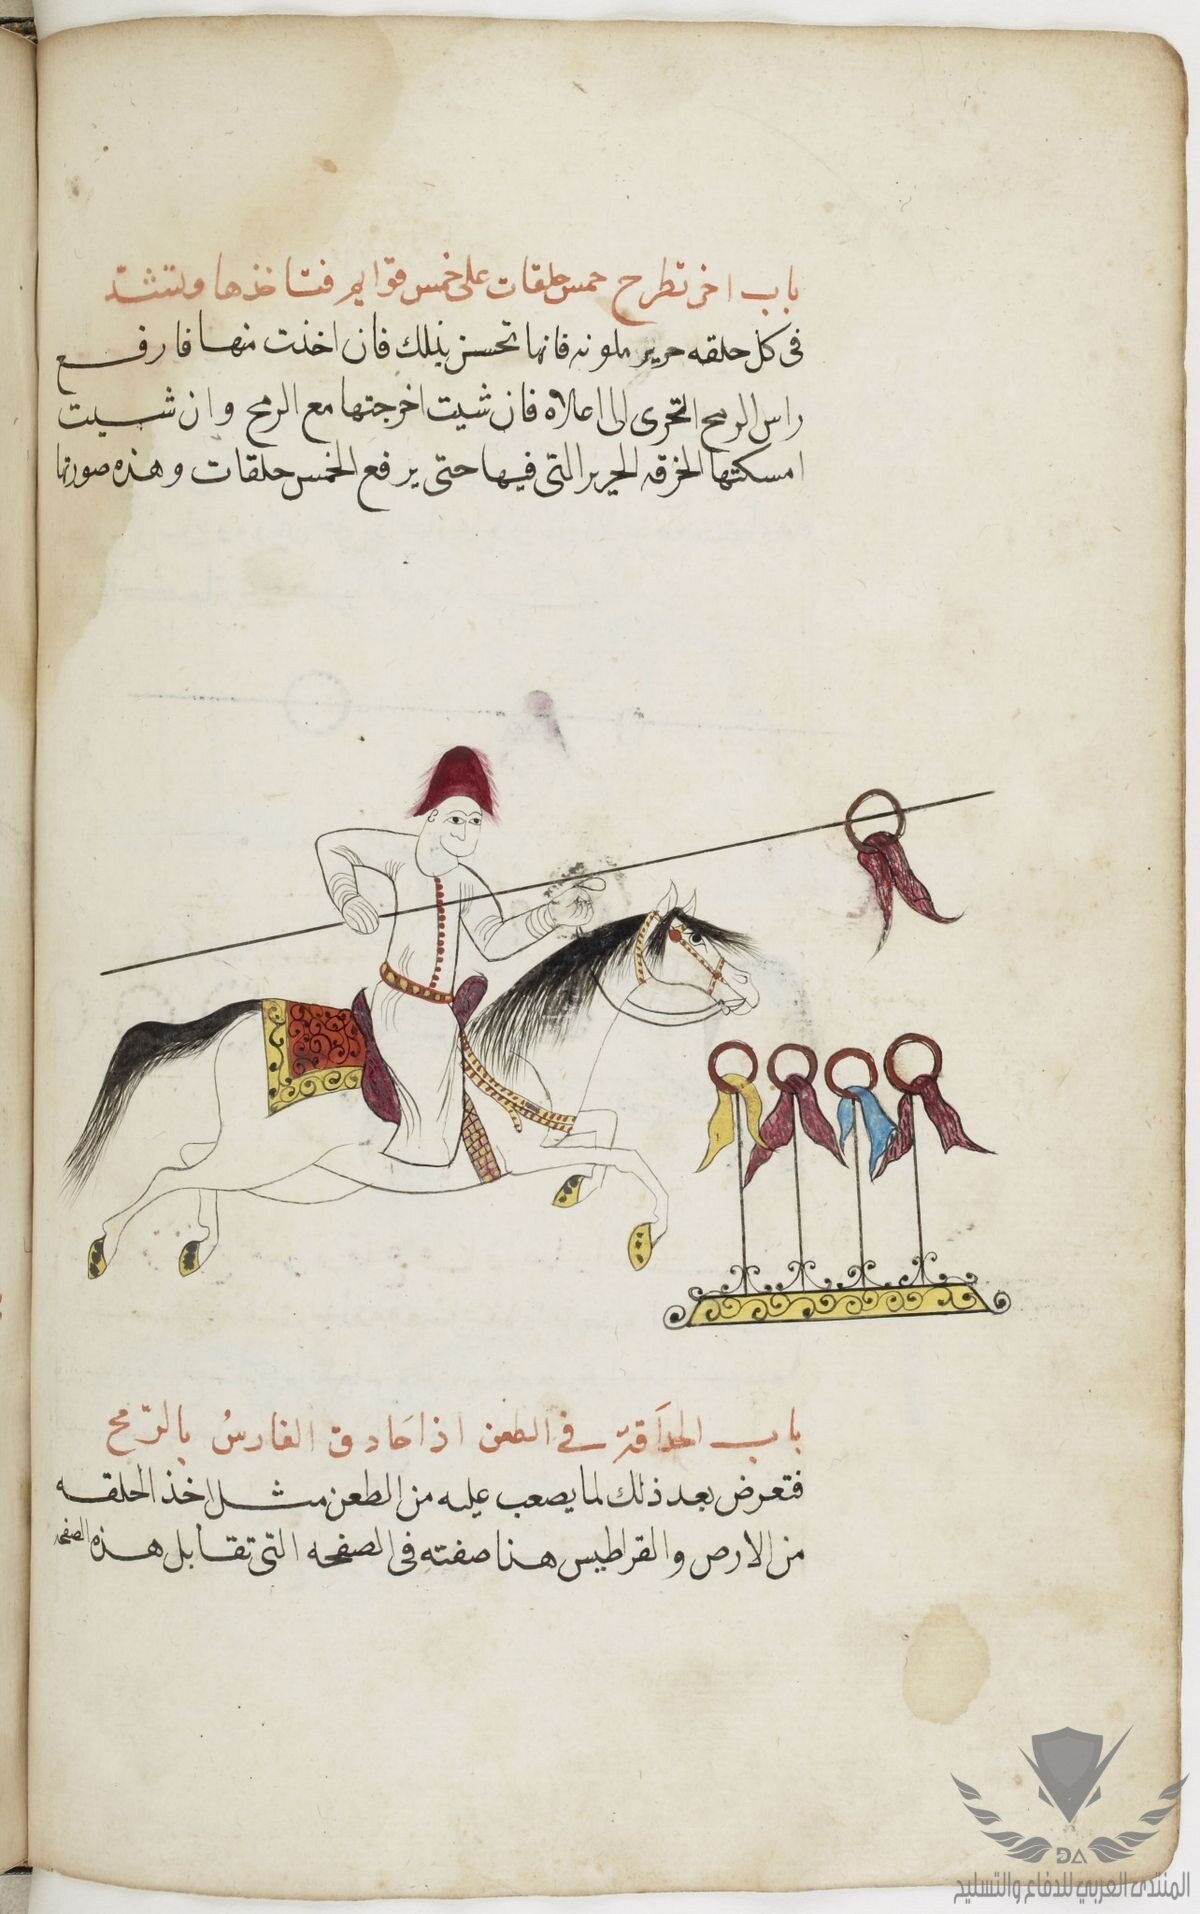 باب اخر تطرح خمس حلقات على خمس قوايم فتاخذها وتشد
فى كل حلقه حرير ملونه فانها تحسن بذلك فان اخذت منها فارفع
راس الرمح التحرى الى اعلاه فان شيت اخرجتها مع الرمح وان شيت
امسكتها الخرقه الحرير التى فيها حتى يرفع الخمس حلقات وهذه صورتها
باب الحداقة فى الطعن اذا حادق الفارسُ بالرّمح
فتعرض بعد ذلك لما يصعب عليه من الطعن مثل اخذ الحلقه
من الارض والقراطيس هنا صفته فى الصفحه التى تقابل هذه الصفحه
DA
المنتدى العربي للدفاع والتسليح